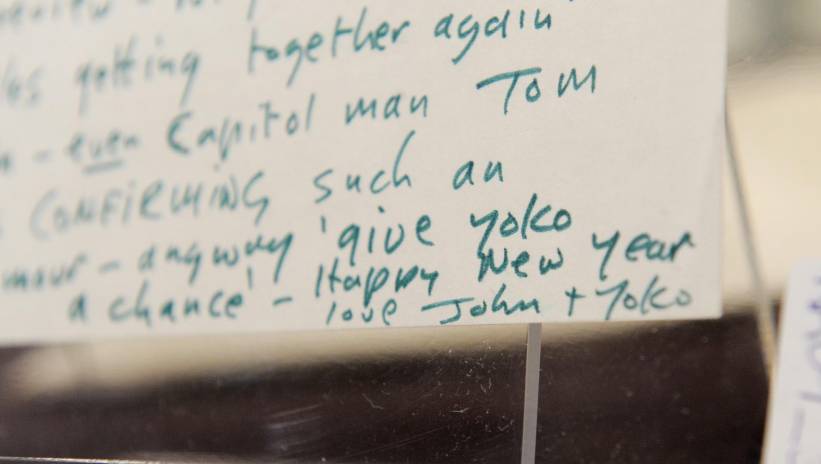 getting together again"
- even Capitol man Tom
CONFIRMING such an
- anyway 'give Yoko
a chance' - Happy New Year
love John + Yoko